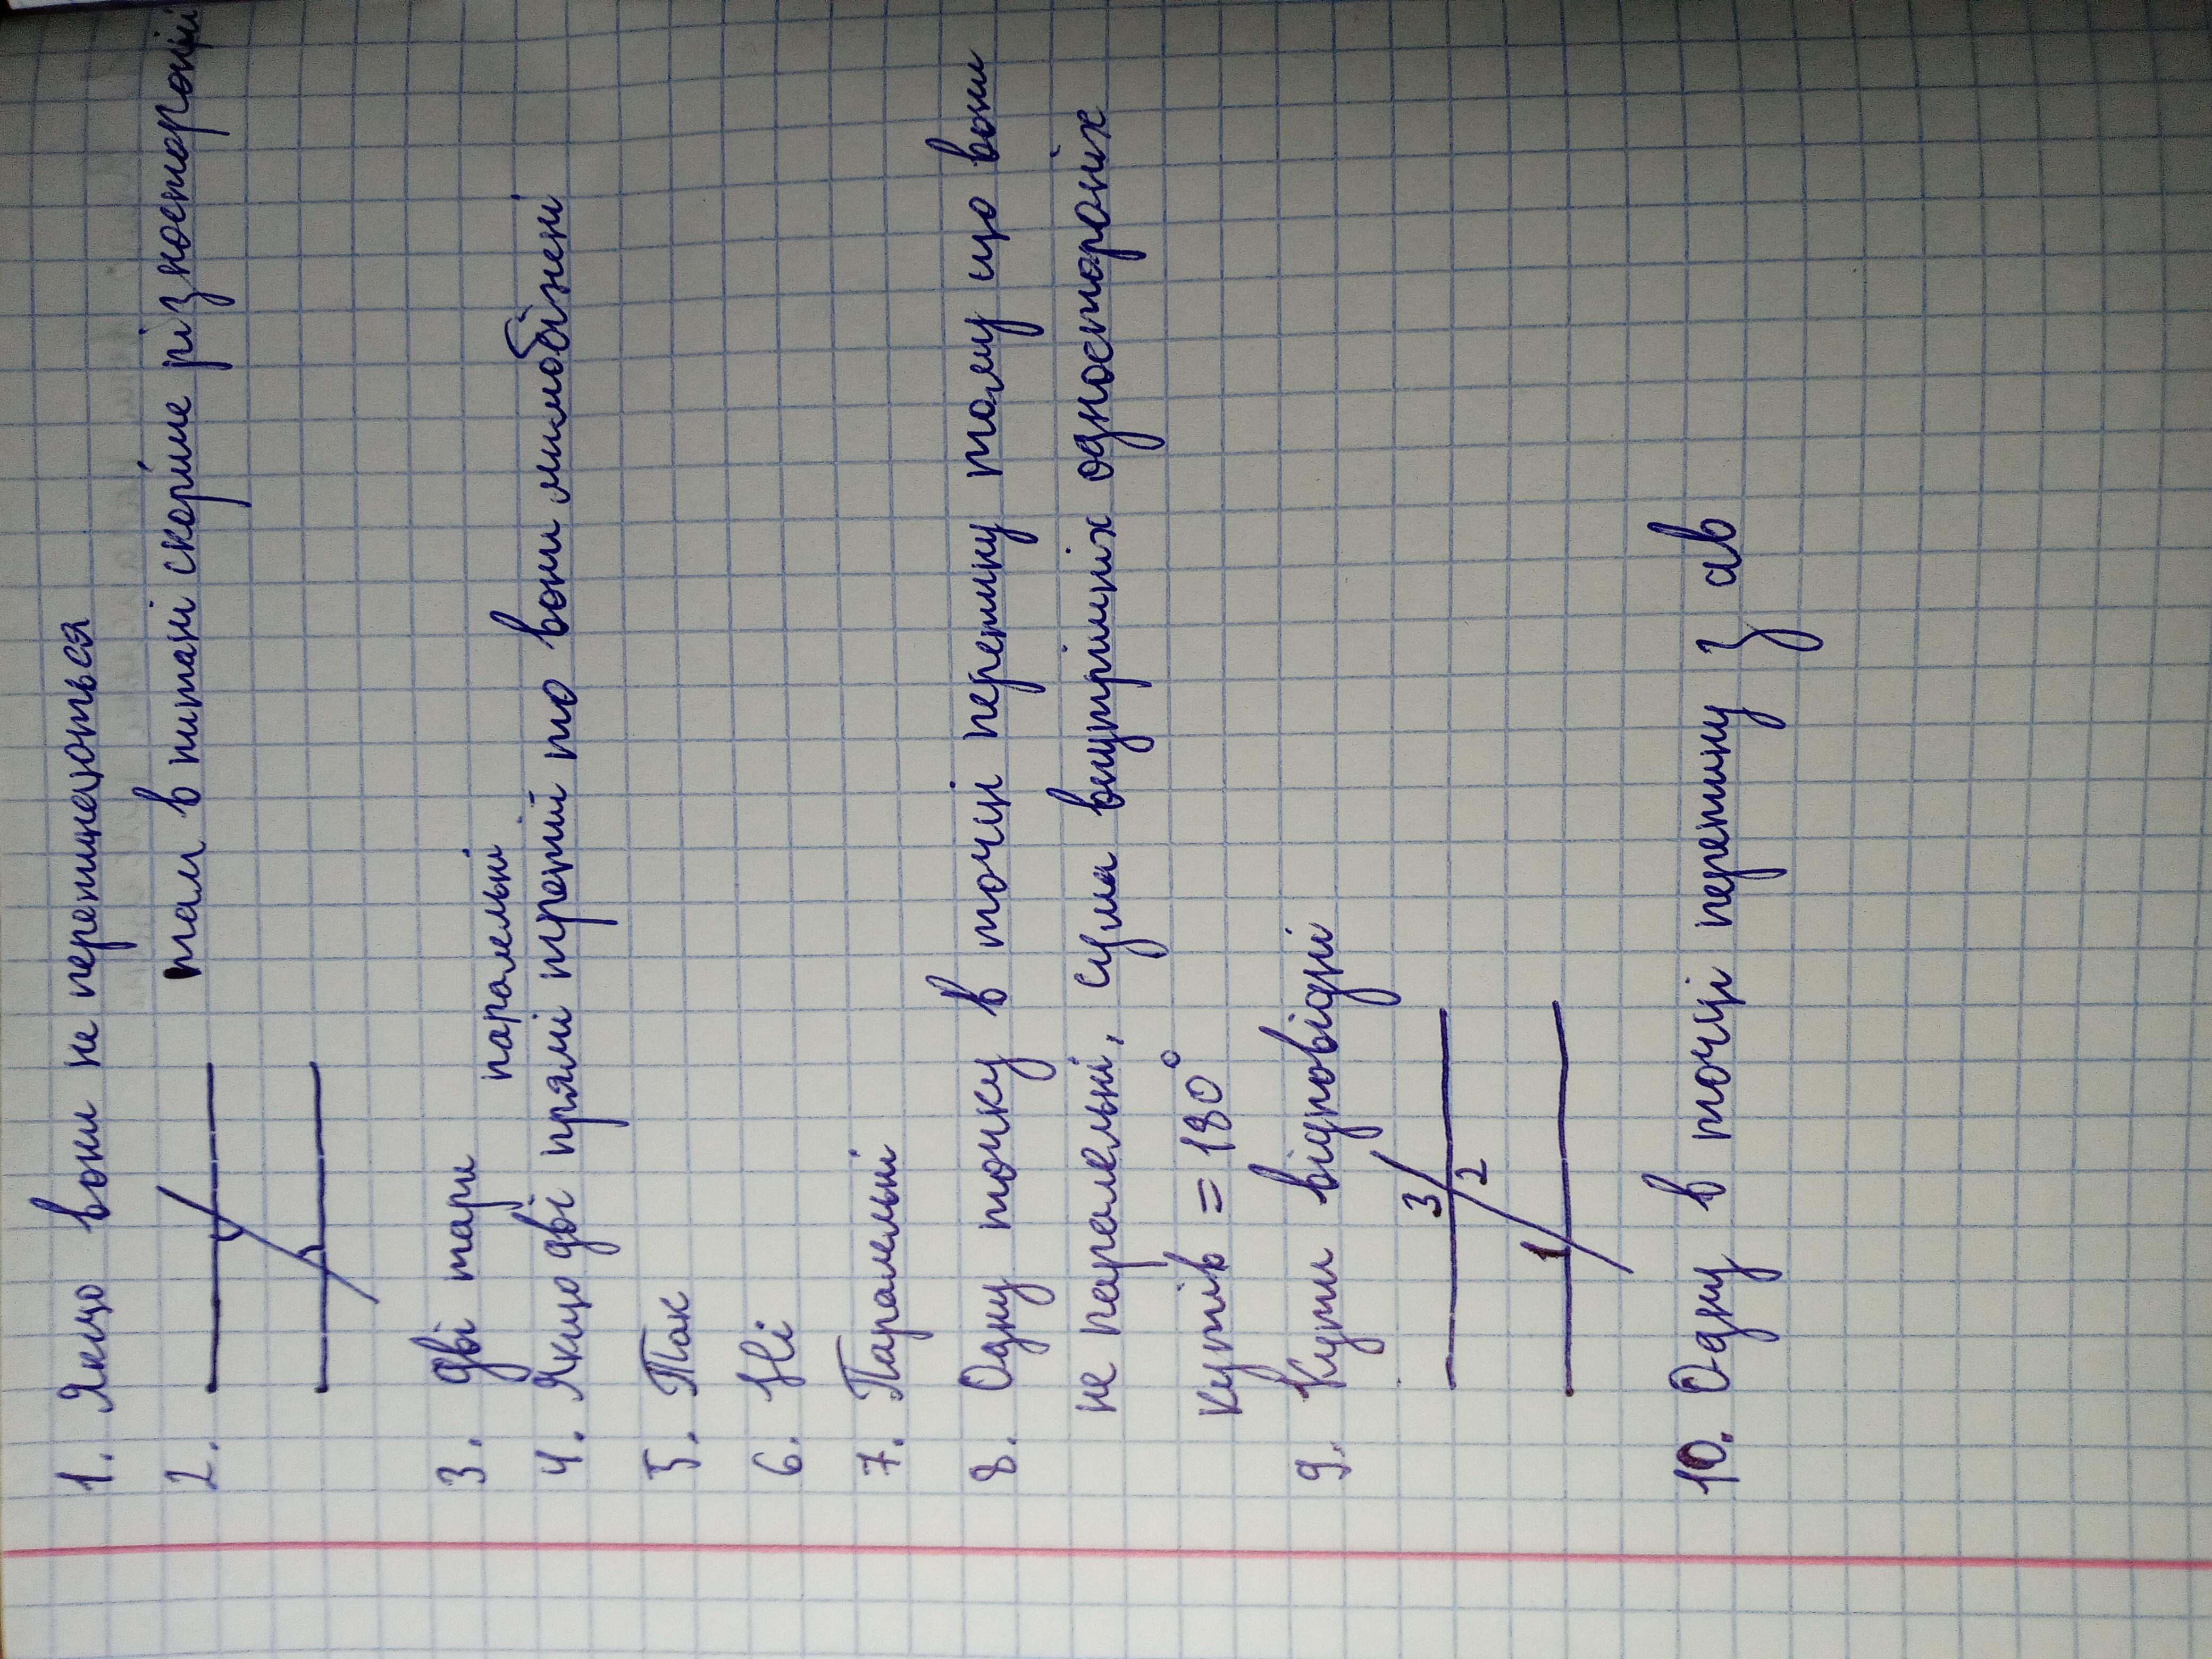 1. Якщо вони не перетинаються
2. там в питані скоріше різносторонні
3. дві пари
паралельні
4. Якщо дві прямі третій то вони мимобіжні
5. Так
6. Ні
7. Паралельні
8. Одну точку в точці перетину тому що вони
не паралельні, сума внутрішніх односторонніх
кутів = 180°
9. Кути відповідні
3
2
1
10. Одну в точці перетину з ав